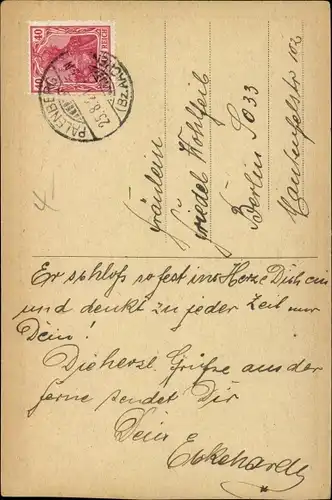 40 REICH 40
PALENBERG
25.8.2
(Bz. AACHEN)
Fräulein
Friedel Wohlfeil
Berlin SO33
Manteufelstr 102
4
Er schloß so fest ins Herze Dich ein
und denkt zu jeder Zeit nur
Dein!
Die herzl. Grüße aus der
ferne sendet Dir
Dein
Eckehardt